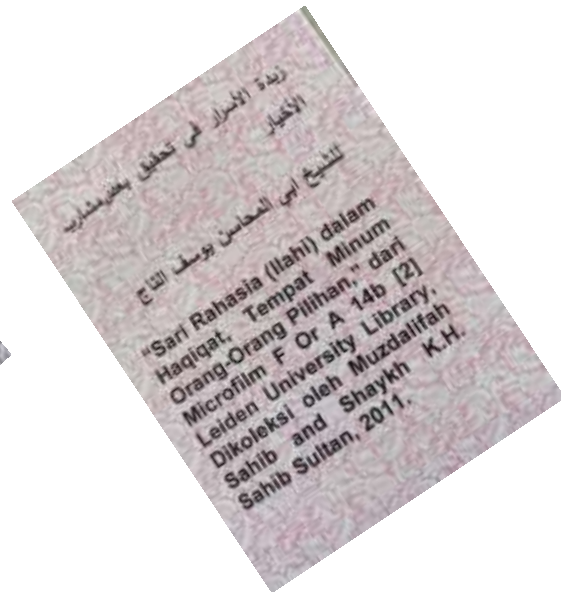 زبدة الأسرار في تحقيق بعض مشارب
الأخيار
للشيخ ابي المحاسن يوسف التاج
“Sari Rahasia (Ilahi) dalam
Haqiqat, Tempat Minum
Orang-Orang Pilihan,” dari
Microfilm F Or A 14b [2]
Leiden University Library,
Dikoleksi oleh Muzdalifah
Sahib and Shaykh K.H.
Sahib Sultan, 2011.